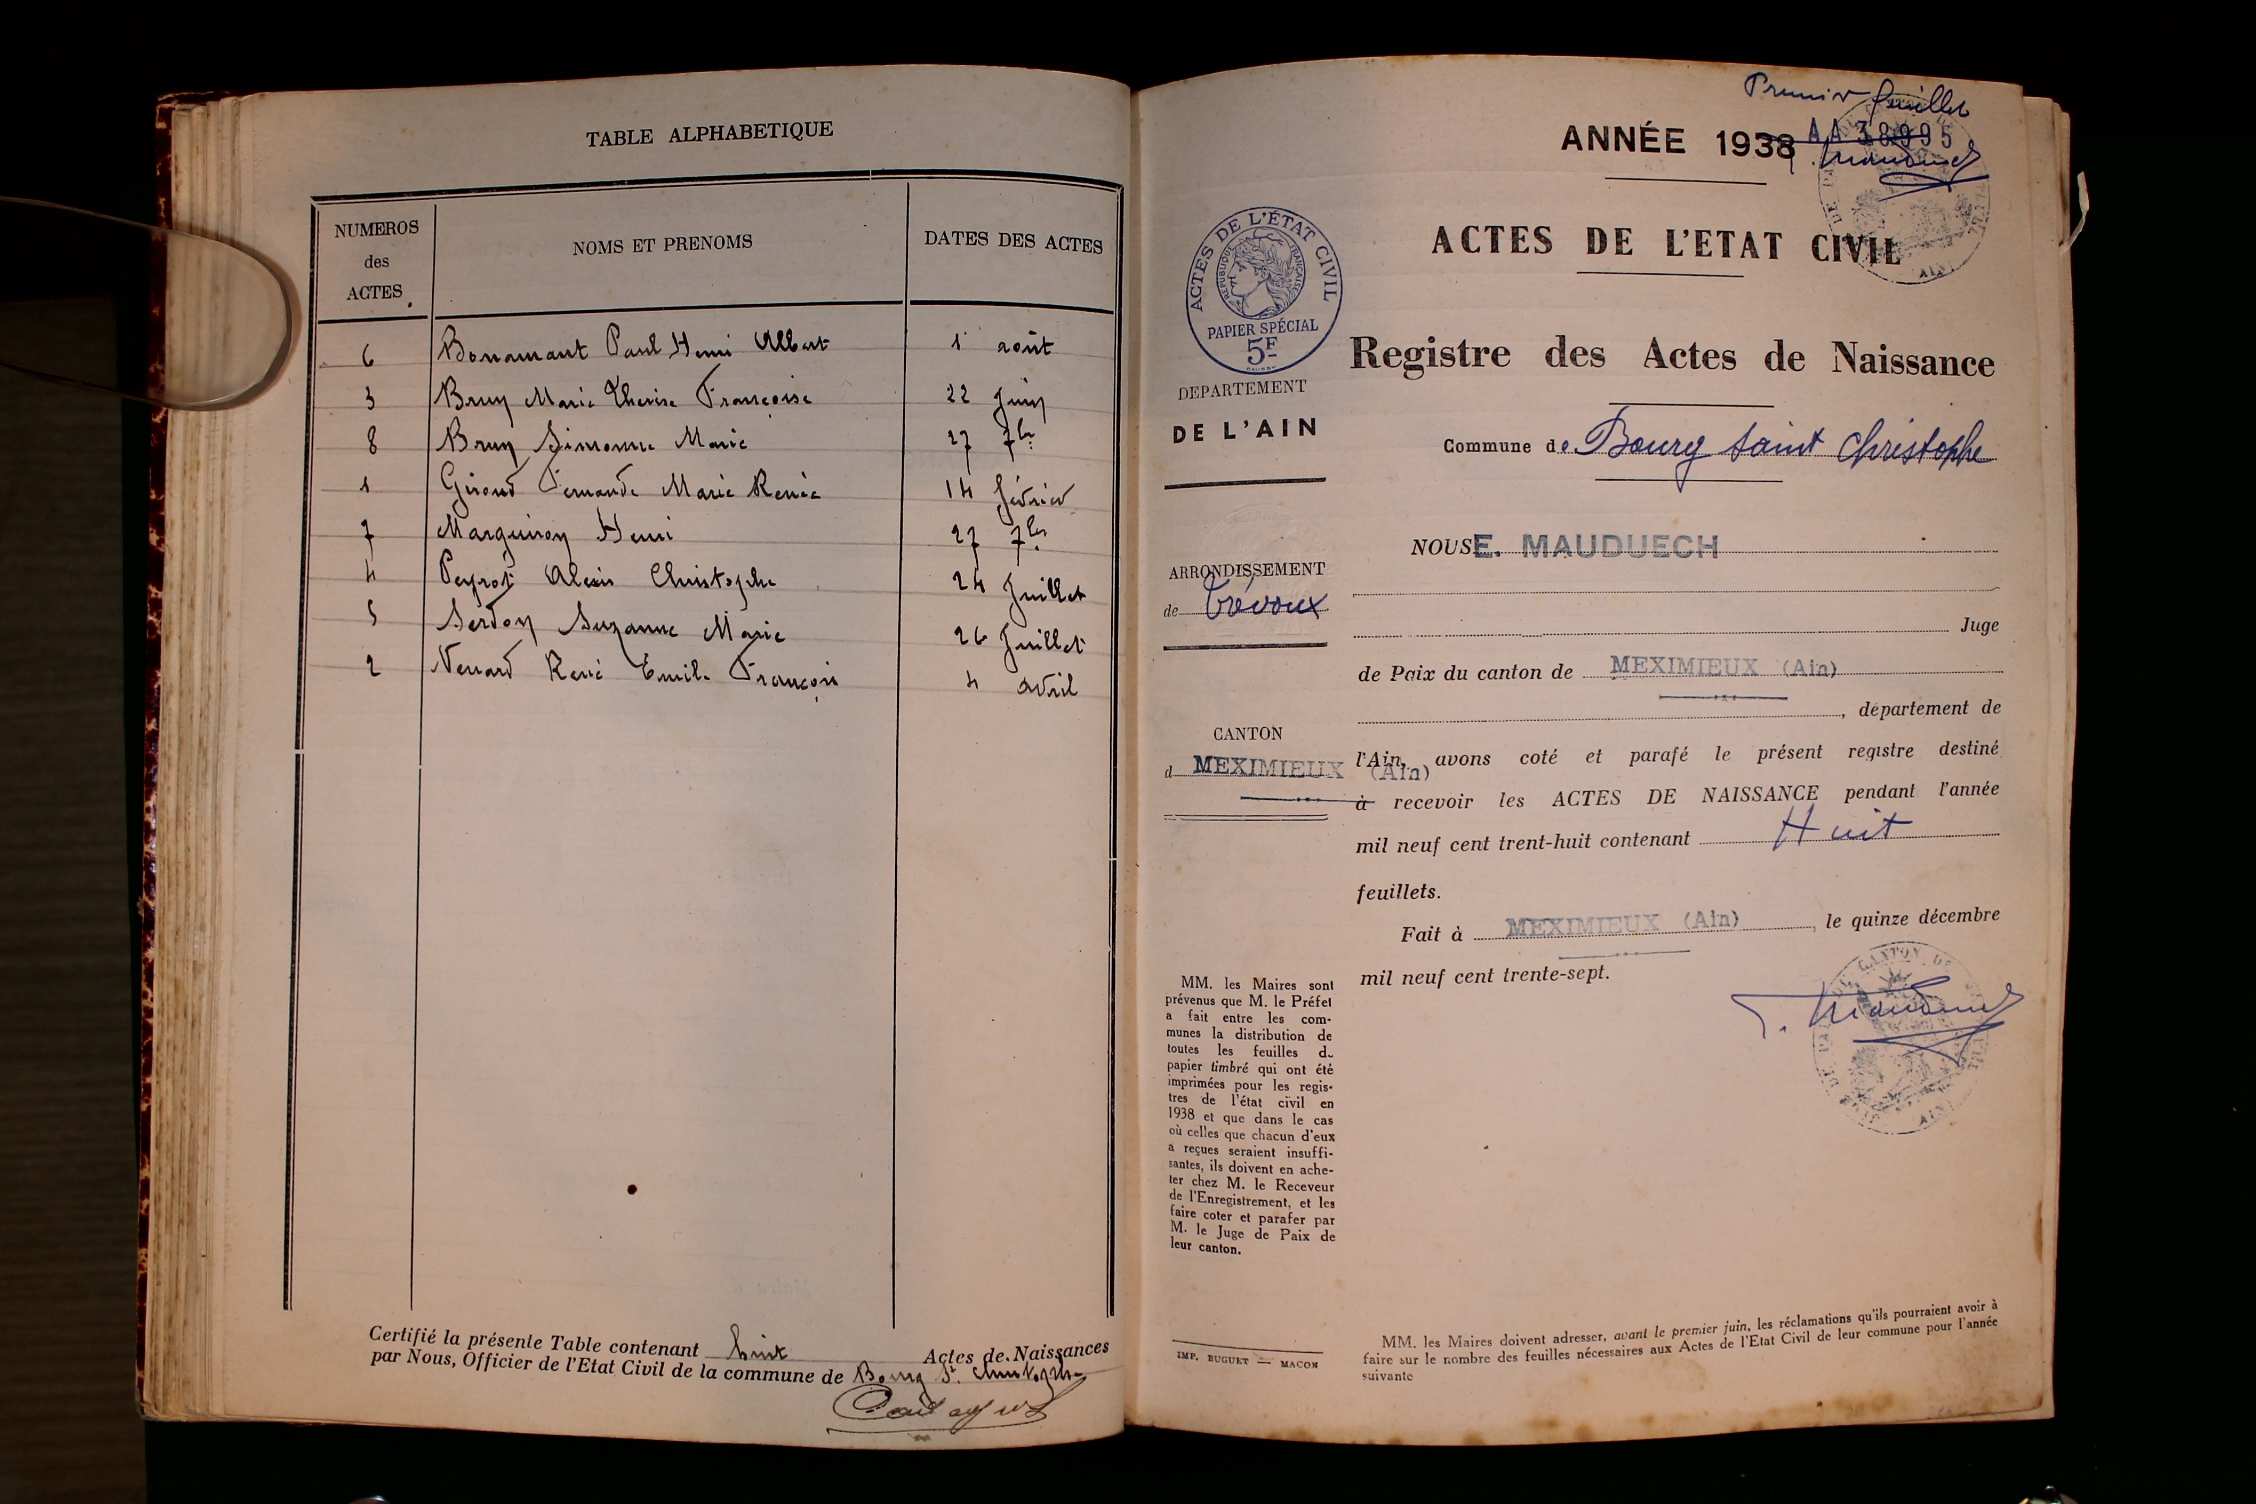 TABLE ALPHABETIQUE
NUMEROS des ACTES NOMS ET PRENOMS DATES DES ACTES
6 Bonamant Paul Henri Albert 1 août
3 Bruy Marie Thérèse Françoise 22 Juin
8 Bruy Simonne Marie 27 7bre
1 Giroud Fernande Marie Renée 14 février
7 Marguiron Henri 27 7bre
4 Peyrot Alexis Christophe 24 Juillet
5 Serdon Suzanne Marie 26 Juillet
2 Venard René Emile François 4 avril
Certifié la présente Table contenant huit Actes de Naissances
par Nous, Officier de l'Etat Civil de la commune de Bourg St. Christophe
Premier feuillet
ANNÉE 1938 AA 38995
ACTES DE L'ETAT CIVIL
ACTES DE L'ÉTAT CIVIL
REPUBLIQUE FRANÇAISE
PAPIER SPÉCIAL
5F
Registre des Actes de Naissance
DEPARTEMENT
DE L'AIN
Commune de Bourg Saint Christophe
ARRONDISSEMENT
de Trévoux
CANTON
d MEXIMIEUX (Ain)
NOUS E. MAUDUECH
Juge
de Paix du canton de MEXIMIEUX (Ain)
, département de
l'Ain, avons coté et parafé le présent registre destiné
à recevoir les ACTES DE NAISSANCE pendant l'année
mil neuf cent trent-huit contenant Huit
feuillets.
Fait à MEXIMIEUX (Ain), le quinze décembre
mil neuf cent trente-sept.
MM. les Maires sont
prévenus que M. le Préfet
a fait entre les com-
munes la distribution de
toutes les feuilles de
papier timbré qui ont été
imprimées pour les regis-
tres de l'état civil en
1938 et que dans le cas
où celles que chacun d'eux
a reçues seraient insuffi-
santes, ils doivent en ache-
ter chez M. le Receveur
de l'Enregistrement, et les
faire coter et parafer par
M. le Juge de Paix de
leur canton.
IMP. BUGUET — MACON
MM. les Maires doivent adresser, avant le premier juin, les réclamations qu'ils pourraient avoir à
faire sur le nombre des feuilles nécessaires aux Actes de l'Etat Civil de leur commune pour l'année
suivante